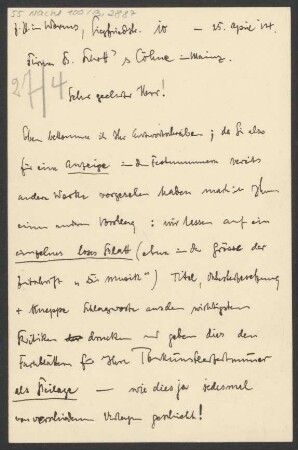 55 Nachl 100/A, 2887
z. Zt. in Worms, Siegfriedstr. 10 — 25. April 14.
Firma B. Schott's Söhne in Mainz
27/4
Sehr geehrter Herr!
Eben bekomme ich Ihr Antwortschreiben; da Sie also
für eine Anzeige in den Festnummern bereits
andere Werke vorgesehen haben mache ich Ihnen
einen andern Vorschlag: wir lassen auf ein
einzelnes loses Blatt (etwa in der Grösse der
Zeitschrift "Die Musik") Titel, Orchesterbesetzung
+ knappe Schlagworte aus den wichtigsten
Kritiken drucken und geben dies den
Fachblättern für Ihre Tonkünstlerfestnummer
als Beilage — wie dies ja jedesmal
von verschiedenen Verlagen geschieht!